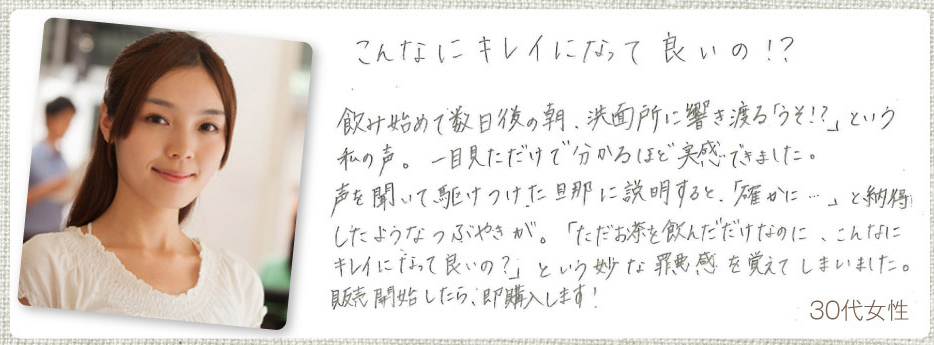 こんなにキレイになって良いの!?
飲み始めて数日後の朝、洗面所に響き渡る「うそ!?」という
私の声。一目見ただけで分かるほど実感できました。
声を聞いて駆けつけた旦那に説明すると、「確かに…」と納得
したようなつぶやきが。「ただお茶を飲んだだけなのに、こんなに
キレイになって良いの?」という妙な罪悪感を覚えてしまいました。
販売開始したら、即購入します!
30代女性